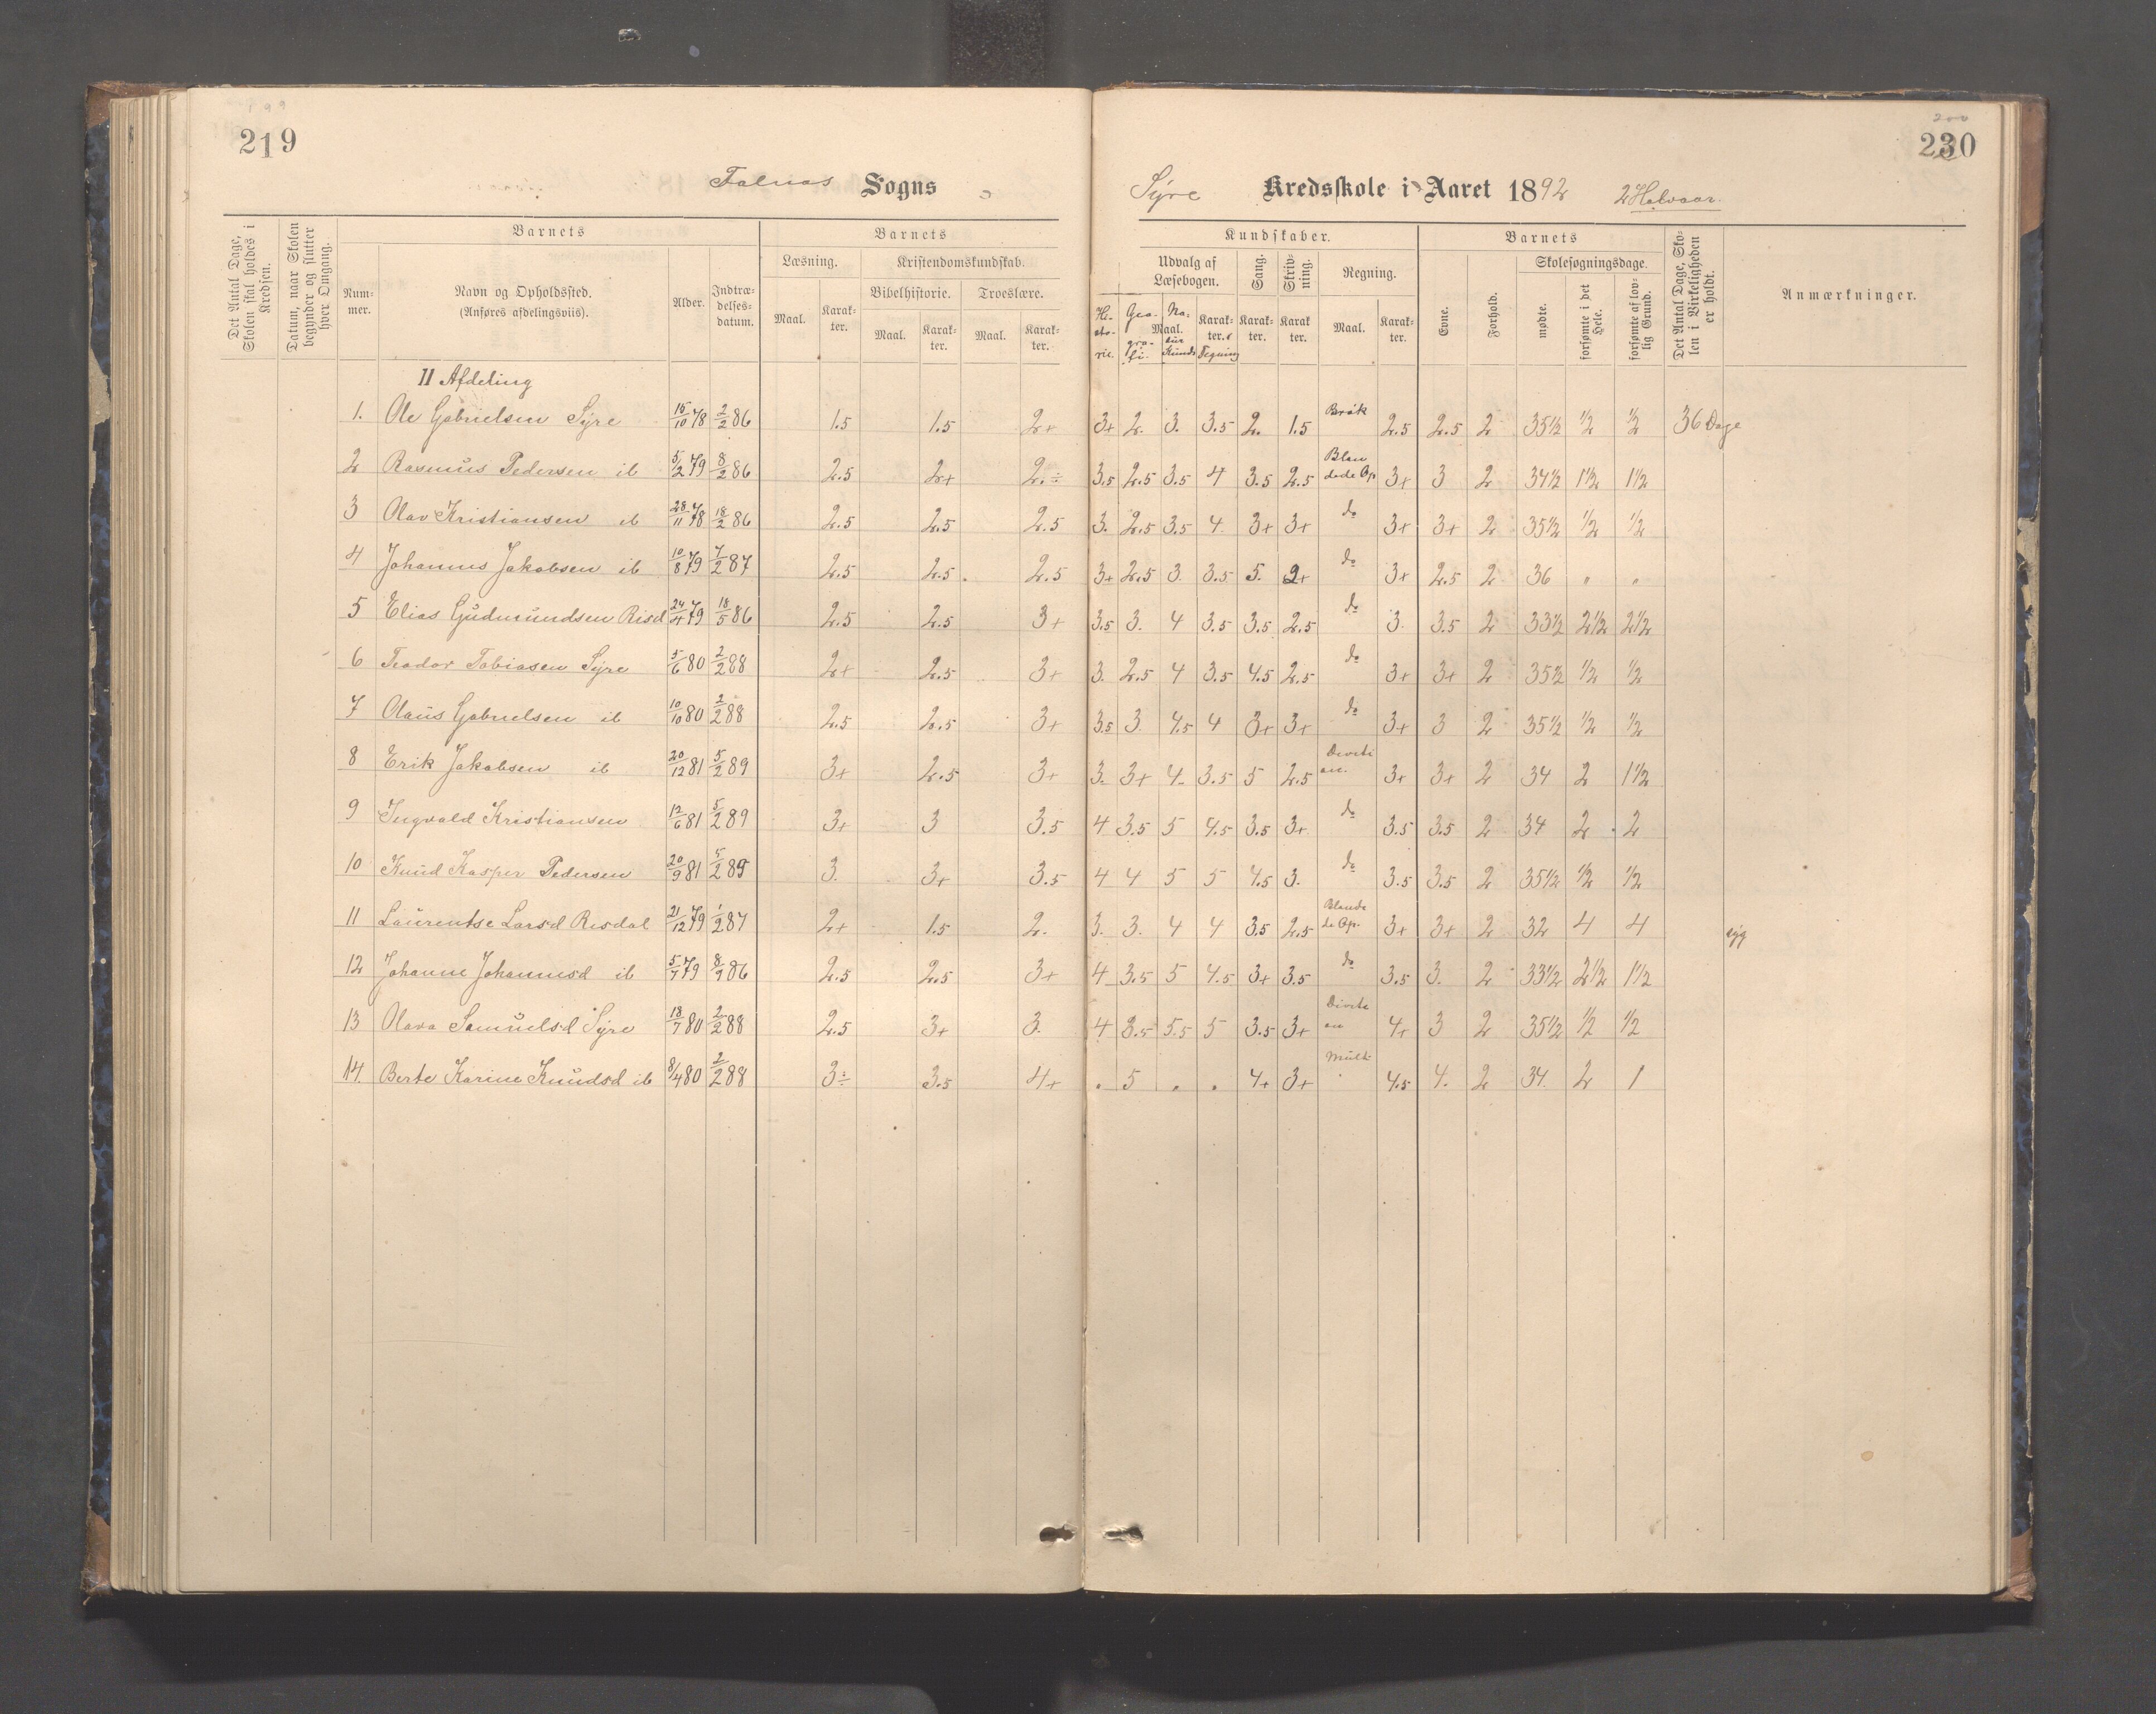 219
Falnas Sogns
Syre Kredsskole i Aaret 1892 2 Halvaar.
200
230
Det Antal Dage, Skolen skal holdes i Kredsen.
Datum, naar Skolen begynder og slutter hver Omgang.
Barnets
Num-mer.
Navn og Opholdssted.
(Anføres afdelingsviis).
Alder.
Indtræ-delses-datum.
Barnets
Læsning.
Kristendomskundskab.
Bibelhistorie.
Troeslære.
Maal. Karak-ter. Maal. Karak-ter. Maal. Karak-ter.
Kundskaber.
Udvalg af Læsebogen.
Hi-sto-rie. Geo-gra-fi. Na-tur Kunds Maal. Karak-ter. Tegning
Sang. Karak-ter.
Skriv-ning. Karak ter.
Regning. Maal. Karak-ter.
Barnets
Evne. Forhold.
Skolesøgningsdage.
mødte. forsømte i det Hele. forsømte af lov-lig Grund.
Det Antal Dage, Sko-len i Virkeligheden er holdt.
Anmærkninger.
II Afdeling
1. Ole Gabrielsen Syre 15/10 78 2/2 86 1.5 1.5 2+ 3+ 2. 3. 3.5 2. 1.5 Brøk 2.5 2.5 2 35½ ½ ½ 36 Dage
2 Rasmus Pedersen ib 5/2 79 8/2 86 2.5 2+ 2.÷ 3.5 2.5 3.5 4 3.5 2.5 Blan dede Op 3+ 3 2 34½ 1½ 1½
3 Olav Kristiansen ib 28/11 78 18/2 86 2.5 2.5 2.5 3. 2.5 3.5 4 3+ 3+ do 3+ 3+ 2 35½ ½ ½
4 Johannes Jakobsen ib 10/8 79 7/2 87 2.5 2.5. 2.5 3+ 2.5 3. 3.5 5. 2+ do 3+ 2.5 2 36 " "
5 Elias Gudmundsen Risd 24/4 79 18/5 86 2.5 2.5 3+ 3.5 3. 4 3.5 3.5 2.5 do 3. 3.5 2 33½ 2½ 2½
6 Teodor Tobiasen Syre 5/6 80 2/2 88 2+ 2.5 3+ 3. 2.5 4 3.5 4.5 2.5 do 3+ 3+ 2 35½ ½ ½
7 Olaus Gabrielsen ib 10/10 80 2/2 88 2.5 2.5 3+ 3.5 3. 4.5 4 3+ 3+ do 3+ 3 2 35½ ½ ½
8 Erik Jakobsen ib 20/12 81 5/2 89 3+ 2.5 3+ 3. 3+ 4 3.5 5 2.5 Diviti on. 3+ 3+ 2 34 2 1½
9 Ingvald Kristiansen 12/6 81 5/2 89 3+ 3 3.5 4 3.5 5 4.5 3.5 3+ do 3.5 3.5 2 34 2 2
10 Knud Kasper Pedersen 20/9 81 5/2 89 3. 3+ 3.5 4 4 5 5 4.5 3. do 3.5 3.5 2 35½ ½ ½
11 Laurentse Larsd Risdal 21/12 79 1/2 87 2+ 1.5 2. 3. 3. 4 4 3.5 2.5 Blande de Op. 3+ 3+ 2 32 4 4 syg
12 Johanne Johannesd ib 5/7 79 8/9 86 2.5 2.5 3+ 4 3.5 5 4.5 3+ 3.5 do 3.5 3. 2 33½ 2½ 1½
13 Olava Samuelsd Syre 18/7 80 2/2 88 2.5 3+ 3. 4 3.5 5.5 5 3.5 3+ Divite on 4+ 3 2 35½ ½ ½
14. Berte Karine Knudsd ib 8/4 80 2/2 88 3÷ 3.5 4+ . 5 . . 4+ 3+ Mult. 4.5 4. 2 34. 2 1